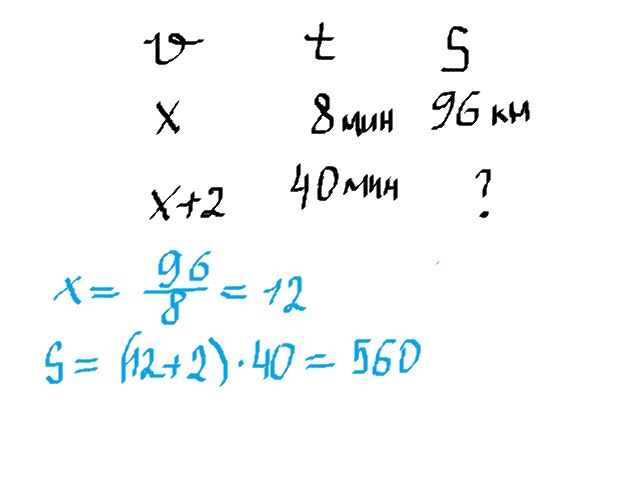 v t S
x 8мин 96 км
x+2 40мин ?
x = 96/8 = 12
S = (12+2)·40 = 560